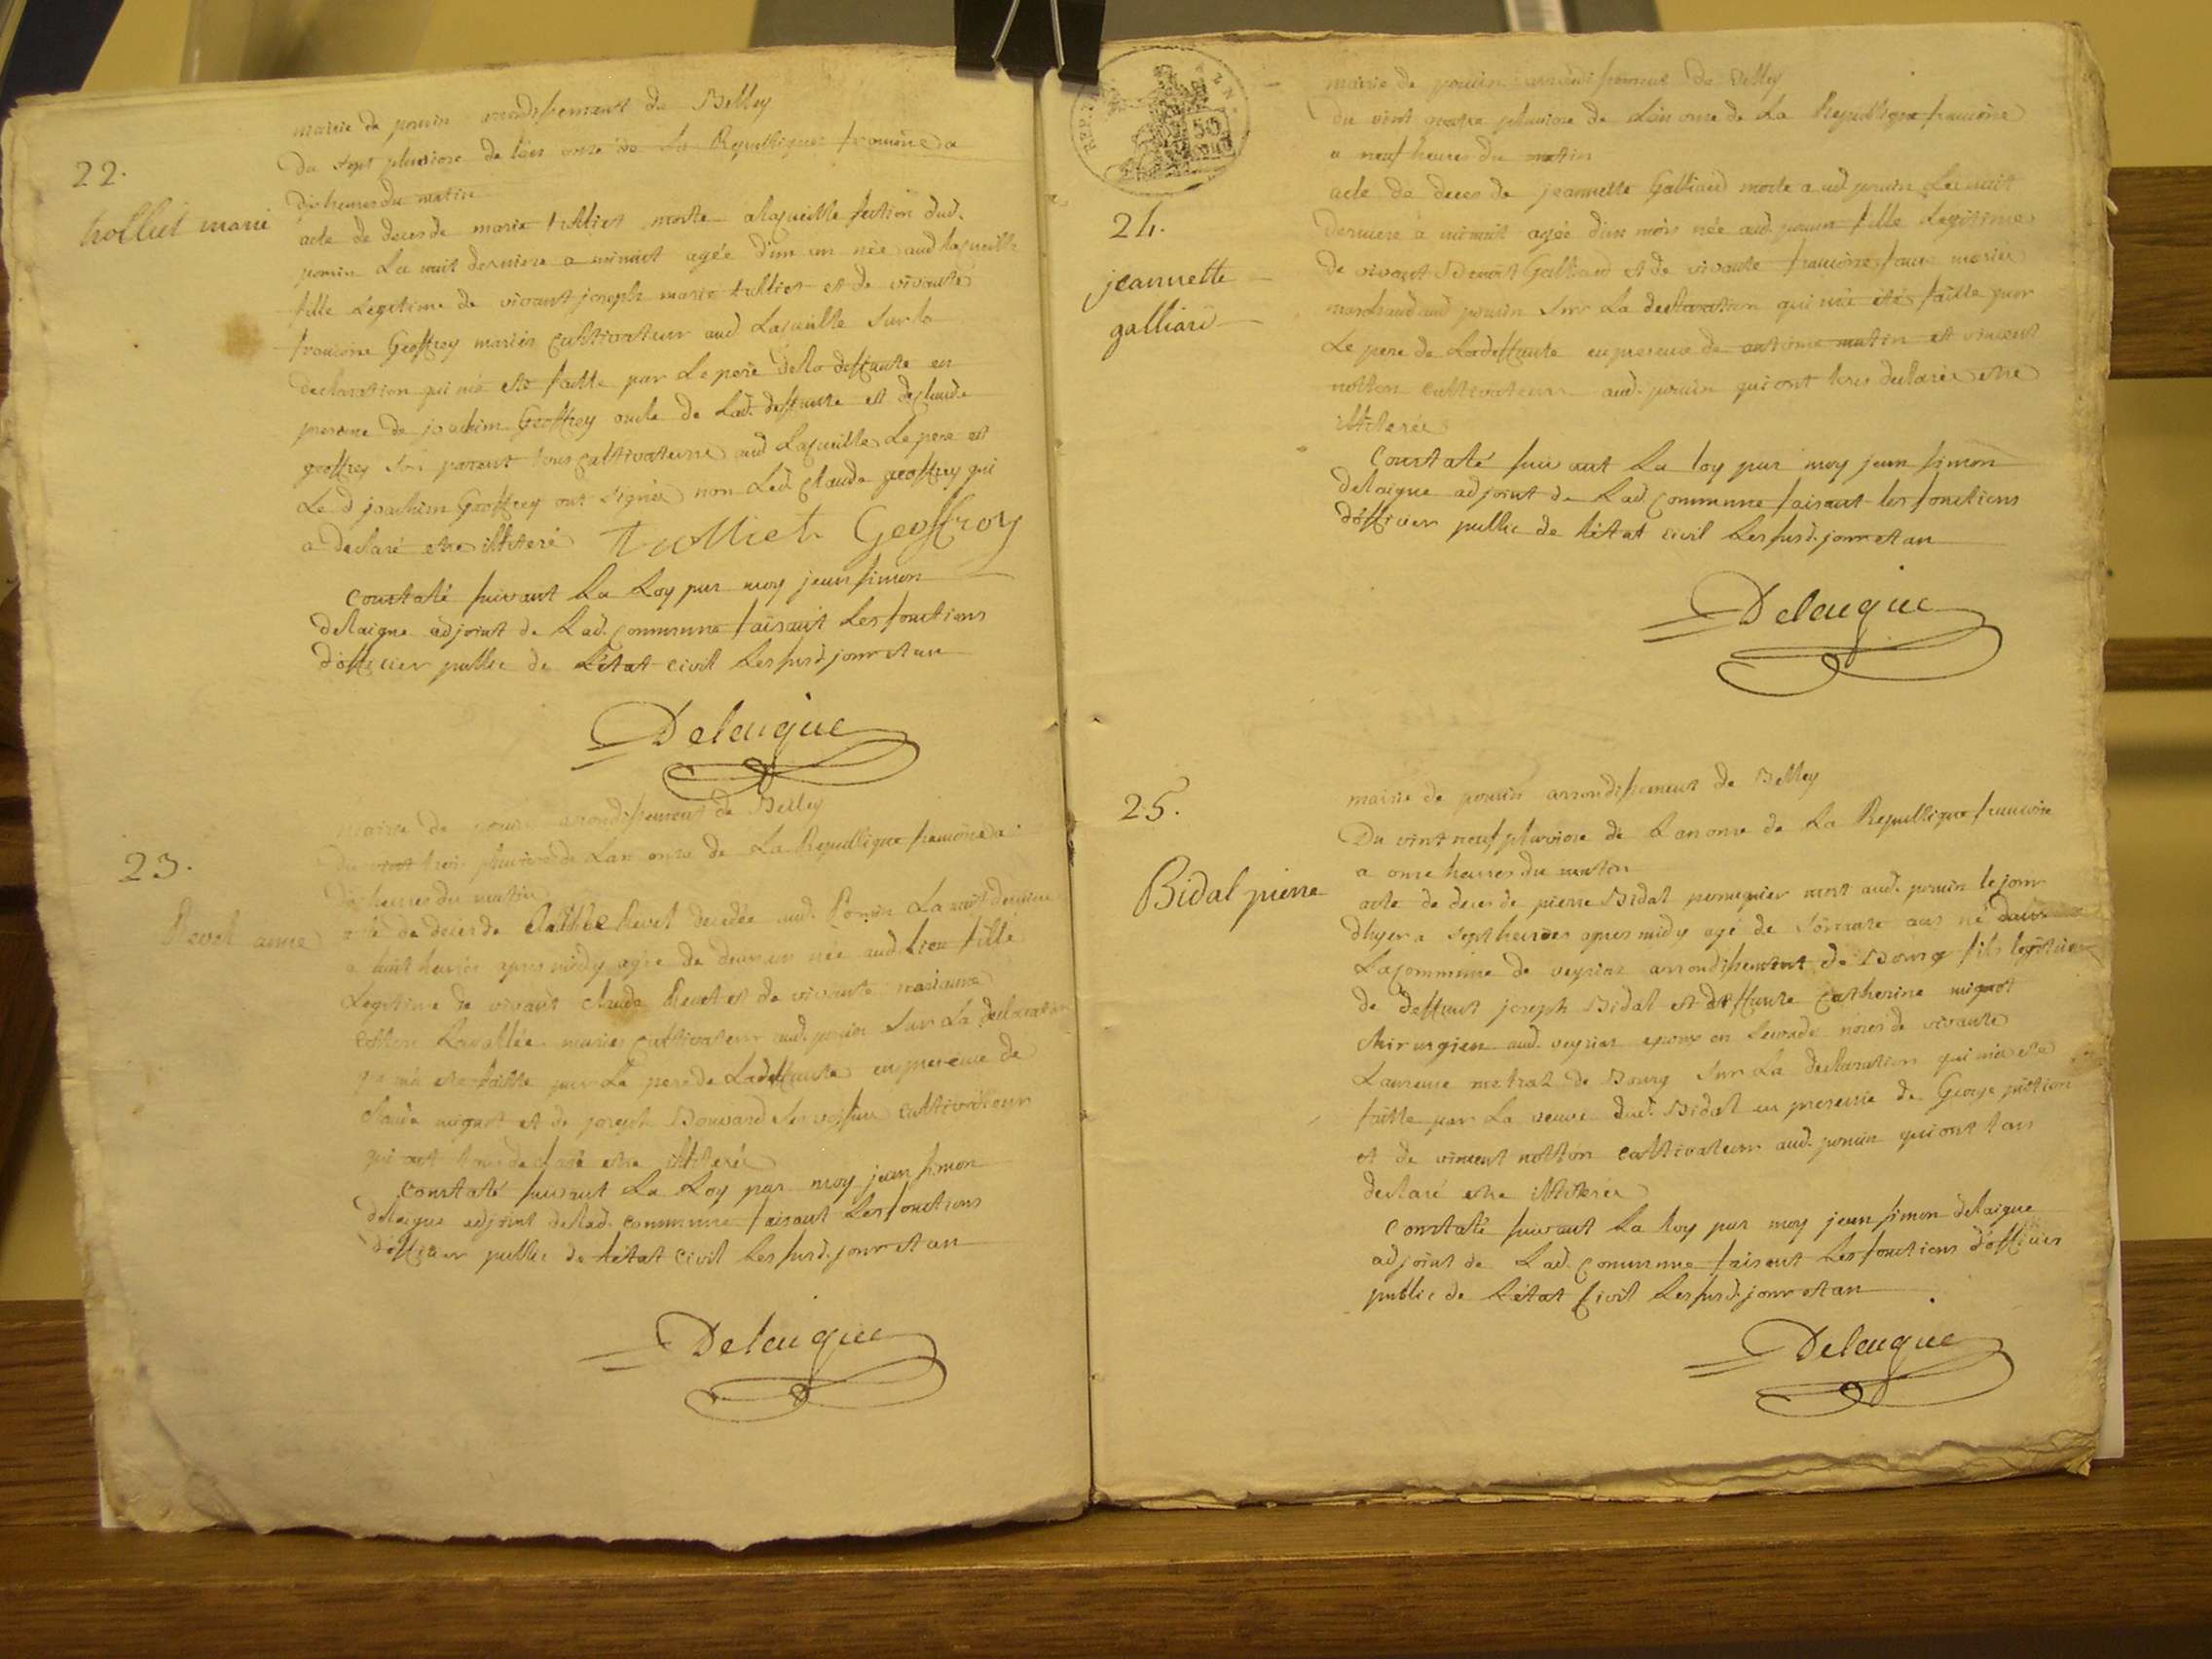 22.
trolliet marie
mairie de poncin arrondissement de Belley
Du sept pluviose de l'an onze de La Republique francoise a
dix heures du matin
acte de deces de marie trolliet morte a la section dud.
poncin La nuit derniere a minuit agée d'un an née aud
fille Legitime de vivant joseph marie trolliet et de vivante
francoise Geoffrey mariés cultivateur aud sur la
declaration qui m'a eté faitte par Le pere de la deffunte en
presence de joachim Geoffrey oncle de Lad. deffunte et de claude
geoffrey son parent tous cultivateurs aud Le pere et
Le d joachim Geoffrey ont signés non Led claude geoffrey qui
a declaré etre illiteré Trolliet Geoffroy
constaté suivant La Loy par moy jean simon
delaigue adjoint de Lad. commune faisant Les fonctions
d'officier public de L'état civil Les susd. jour et an
Delaigue
23.
Revel anne
mairie de poncin arrondissement de Belley
du vint trois pluviose de L'an onze de La Republique francoise a
dix heures du matin
acte de deces de Revel decedée aud. Poncin La nuit derniere
a huit heures apres midy agée de deux ans née aud. Lieu fille
Legitime de vivant claude Revel et de vivante marianne
Lavallée mariés cultivateur aud. poncin sur La declaration
qui m'a eté faitte par Le pere de La deffunte en presence de
claude mignot et de joseph Bouvard cultivateur
qui ont tous declaré etre illiterés
constaté suivant La Loy par moy jean simon
delaigue adjoint de lad. commune faisant Les fonctions
d'officier public de L'état civil Les susd. jour et an
Delaigue
REP.
50
24.
jeannette
galliard
mairie de poncin arrondissement de Belley
du vint quatre pluviose de L'an onze de La Republique francoise
a neuf heures du matin
acte de deces de jeannette Galliard morte a ud poncin La nuit
derniere a minuit agée d'un mois née aud. poncin fille Legitime
de vivant Benoit Galliard et de vivante francoise mariés
marchand aud poncin sur La declaration qui m'a eté faitte par
Le pere de La deffunte en presence de antoine matin et vincent
notton cultivateurs aud. poncin qui ont tous declarés etre
illiterés
constaté suivant La loy par moy jean simon
delaigue adjoint de Lad. commune faisant les fonctions
d'officier public de L'état civil Les susd. jour et an
Delaigue
25.
Bidal pierre
mairie de poncin arrondissement de Belley
Du vint neuf pluviose de L'an onze de La Republique francoise
a onze heures du matin
acte de deces de pierre Bidal perruquier mort aud. poncin le jour
d'hyer a sept heures apres midy agé de soixante ans né dans
La commune de veyriat arrondissement de Bourg fils legitime
de deffunt joseph Bidal et deffunte catherine mignot
chirurgien aud. veyriat epoux en seconde noces de vivante
Laurence metral de Bourg sur La declaration qui m'a eté
faitte par La veuve dud. Bidal en presence de George
et de vincent notton cultivateurs aud. poncin qui ont tous
declaré etre illiterés
constaté suivant La loy par moy jean simon delaigue
adjoint de Lad. commune faisant Les fonctions d'officier
public de L'état civil Les susd. jour et an
Delaigue